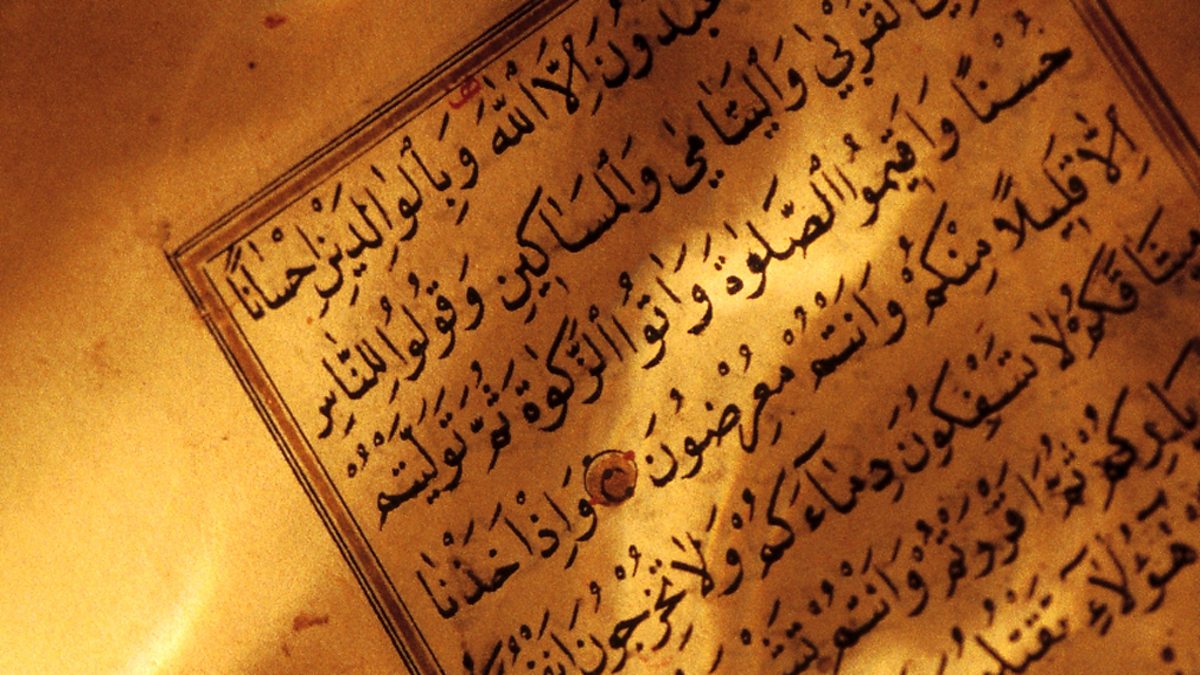 تَعْبُدُونَ اِلَّا اللّٰهَ وَبِالْوَالِدَيْنِ اِحْسَانًا
الْقُرْبٰى وَالْيَتَامٰى وَالْمَسَاكِينِ وَقُولُوا لِلنَّاسِ
حُسْنًا وَاَقِيمُوا الصَّلٰوةَ وَاٰتُوا الزَّكٰوةَ ثُمَّ تَوَلَّيْتُمْ
اِلَّا قَلِيلًا مِنْكُمْ وَاَنْتُمْ مُعْرِضُونَ وَاِذْ اَخَذْنَا
مِيثَاقَكُمْ لَا تَسْفِكُونَ دِمَاءَكُمْ وَلَا تُخْرِجُونَ اَنْفُسَكُمْ
دِيَارِكُمْ ثُمَّ اَقْرَرْتُمْ وَاَنْتُمْ
هٰؤُلَاءِ تَقْتُلُونَ